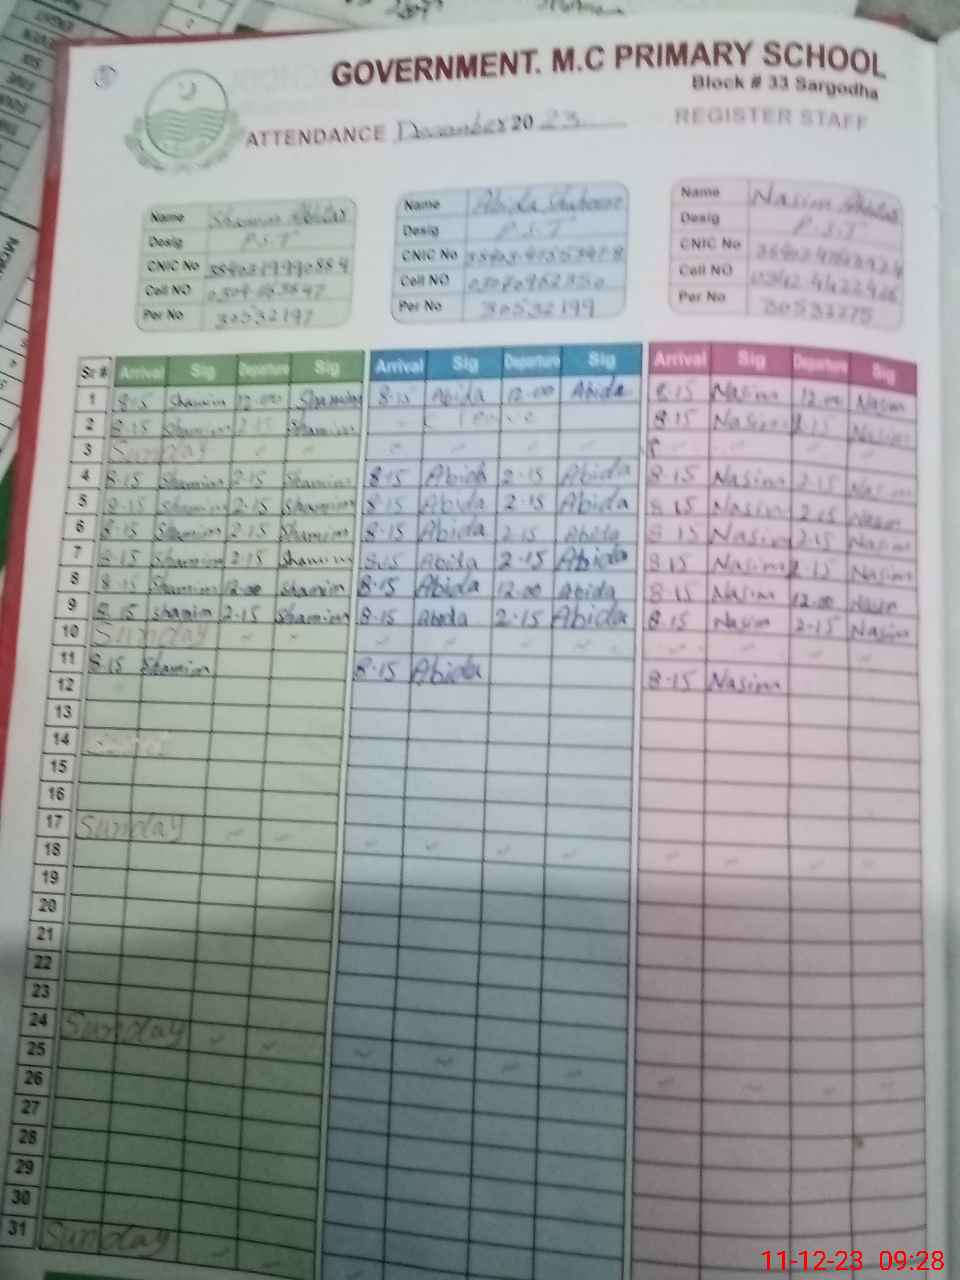 GOVERNMENT. M.C PRIMARY SCHOOL
Block # 33 Sargodha
ATTENDANCE December 20 23 REGISTER STAFF
Name Shamim Akhtar Name Abida Name Nasim Akhtar
Desig P.S.T Desig P.S.T Desig P.S.T
CNIC No CNIC No CNIC No
Cell NO Cell NO Cell NO
Per No 30532197 Per No 30532199 Per No
Sr # Arrival Sig Departure Sig Arrival Sig Departure Sig Arrival Sig Departure Sig
1 8-15 Shamim 12-00 Shamim 8-15 Abida 12-00 Abida 8-15 Nasim 12-00 Nasim
2 8-15 Shamim 2-15 Shamim 8-15 Nasim 2-15 Nasim
3 Sunday
4 8-15 Shamim 2-15 Shamim 8-15 Abida 2-15 Abida 8-15 Nasim 2-15 Nasim
5 8-15 Shamim 2-15 Shamim 8-15 Abida 2-15 Abida 8-15 Nasim 2-15 Nasim
6 8-15 Shamim 2-15 Shamim 8-15 Abida 2-15 Abida 8-15 Nasim 2-15 Nasim
7 8-15 Shamim 2-15 Shamim 8-15 Abida 2-15 Abida 8-15 Nasim 2-15 Nasim
8 8-15 Shamim 12-00 Shamim 8-15 Abida 12-00 Abida 8-15 Nasim 12-00 Nasim
9 8-15 Shamim 2-15 Shamim 8-15 Abida 2-15 Abida 8-15 Nasim 2-15 Nasim
10 Sunday
11 8-15 Shamim 8-15 Abida 8-15 Nasim
12
13
14
15
16
17 Sunday
18
19
20
21
22
23
24 Sunday
25
26
27
28
29
30
31 Sunday
11-12-23 09:28